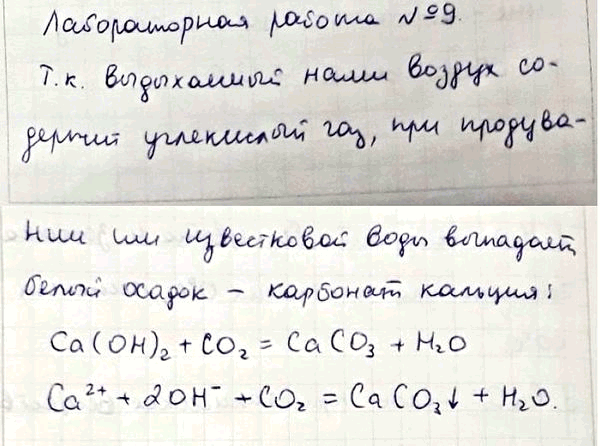 Лабораторная работа №9.
Т.к. выдыхаемый нами воздух со-
держит углекислый газ, при продува-
нии им известковой воды выпадает
белый осадок – карбонат кальция:
Ca(OH)₂ + CO₂ = CaCO₃ + H₂O
Ca²⁺ + 2OH⁻ + CO₂ = CaCO₃↓ + H₂O.